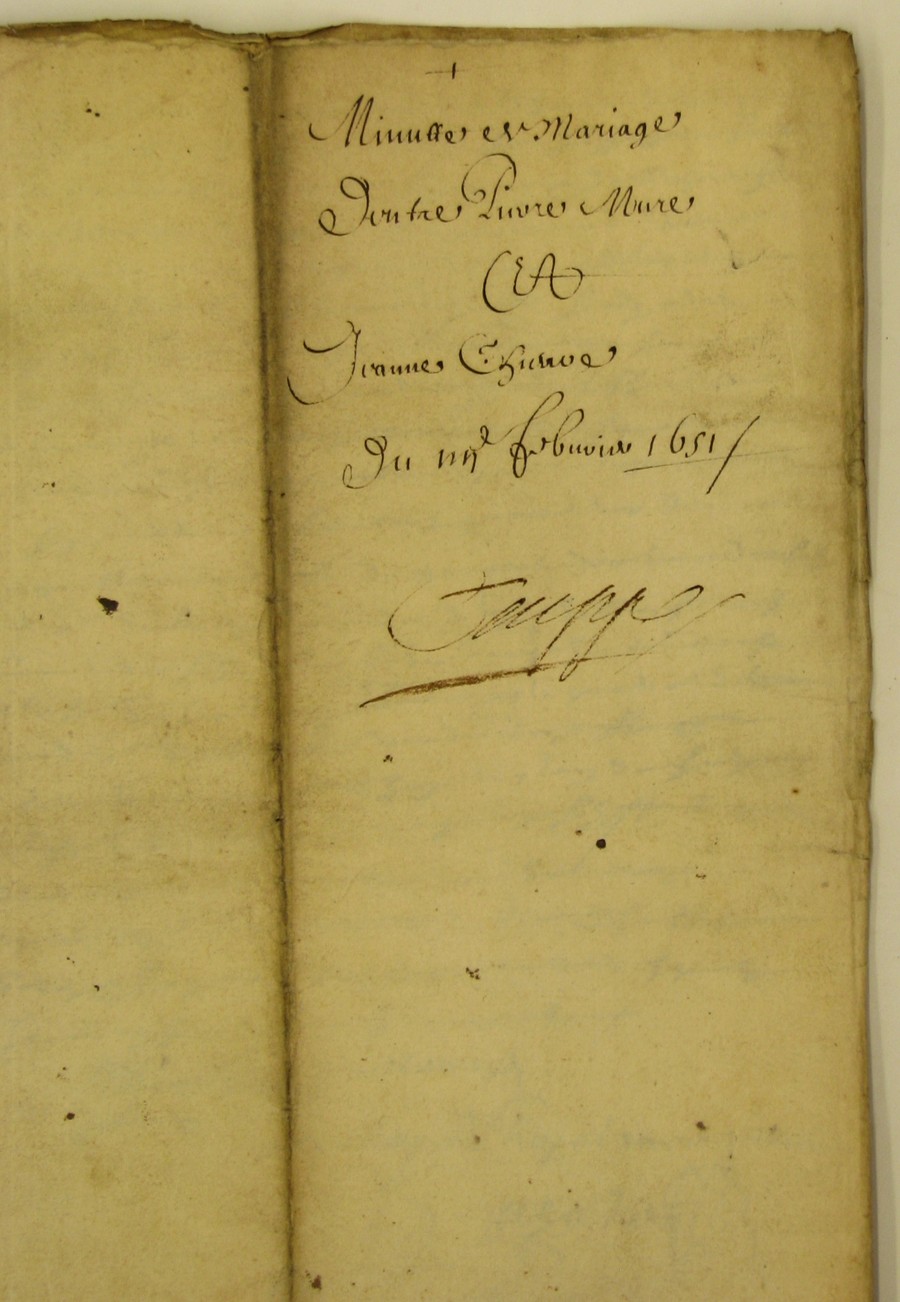 Minutte de Mariage
Dentre Pierre Mure
Et
Jeanne
Du iiijᵉ febvrier 1651